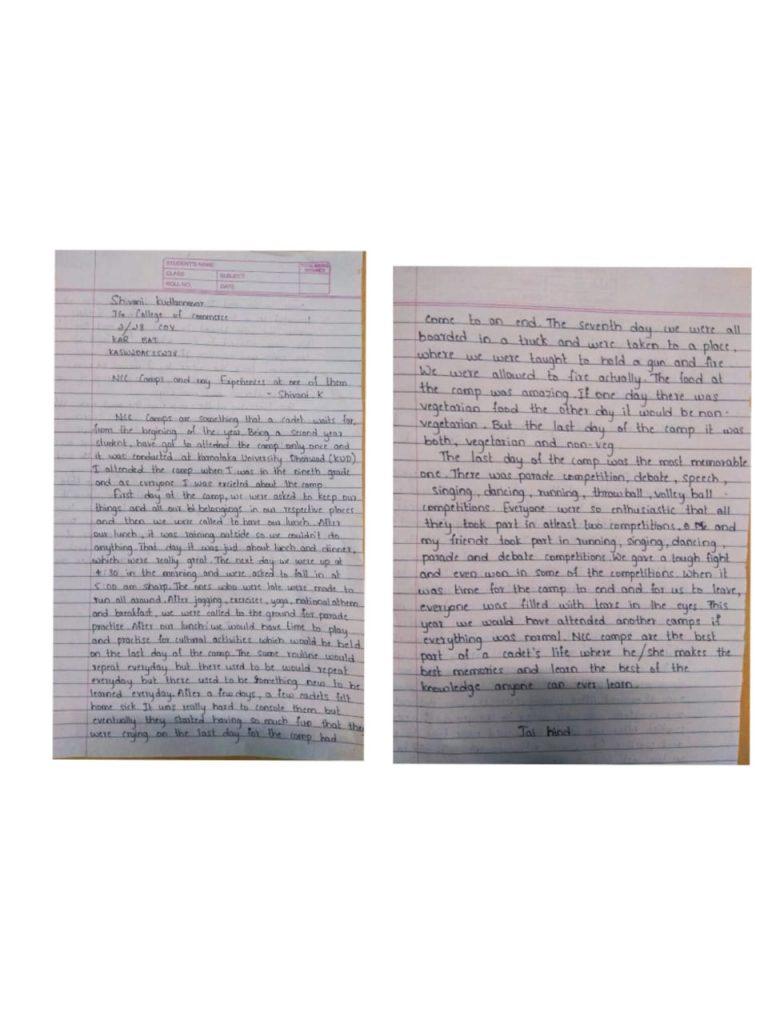 STUDENT'S NAME
CLASS
SUBJECT
ROLL NO.
DATE
Shivani Kudlannavar
JG College of commerce
2/28 COY
KAR BAT
NCC Camps and my Experiences at one of them
- Shivani.K
NCC Camps are something that a cadet waits for,
from the begining of the year. Being a second year
student, have got to attended the camp only once and
it was conducted at Karnataka University Dharwad (KUD)
I attended the camp when I was in the nineth grade
and as everyone I was excieted about the camp.
First day at the camp, we were asked to keep our
things and all our bl belongings in our respective places
and then we were called to have our lunch. After
our lunch, it was raining outside so we couldn't do
anything. That day it was just about lunch and dinner,
which were really great. The next day we were up at
4:30 in the morning and were asked to fall in at
5:00 am sharp. The ones who were late were made to
run all around. After jogging, exercises, yoga, national athem
and breakfast, we were called to the ground for parade
practise. After our lunch, we would have time to play
and practise for cultural activities which would be held
on the last day of the camp. The same routine would
repeat everyday but there used to be would repeat
everyday but there used to be something new to be
learned everyday. After a few days, a few cadets felt
home sick. It was really hard to console them but
eventually they started having so much fun that they
were crying on the last day for the camp had
come to an end. The seventh day we were all
boarded in a truck and were taken to a place,
where we were taught to hold a gun and fire
We were allowed to fire actually. The food at
the camp was amazing. If one day there was
vegetarian food the other day it would be non-
vegetarian. But the last day of the camp it was
both, vegetarian and non-veg
The last day of the camp was the most memorable
one. There was parade competition, debate, speech,
singing, dancing, running, throwball, volley ball
competitions. Everyone were so enthusiastic that all
they took part in atleast two competitions. and
my friends took part in running, singing, dancing,
parade and debate competitions. We gave a tough fight
and even won in some of the competitions. When it
was time for the camp to end and for us to leave,
everyone was filled with tears in the eyes. This
year we would have attended another camps if
everything was normal. NCC camps are the best
part of a cadet's life where he/she makes the
best memories and learn the best of the
knowledge anyone can ever learn.
Jai hind